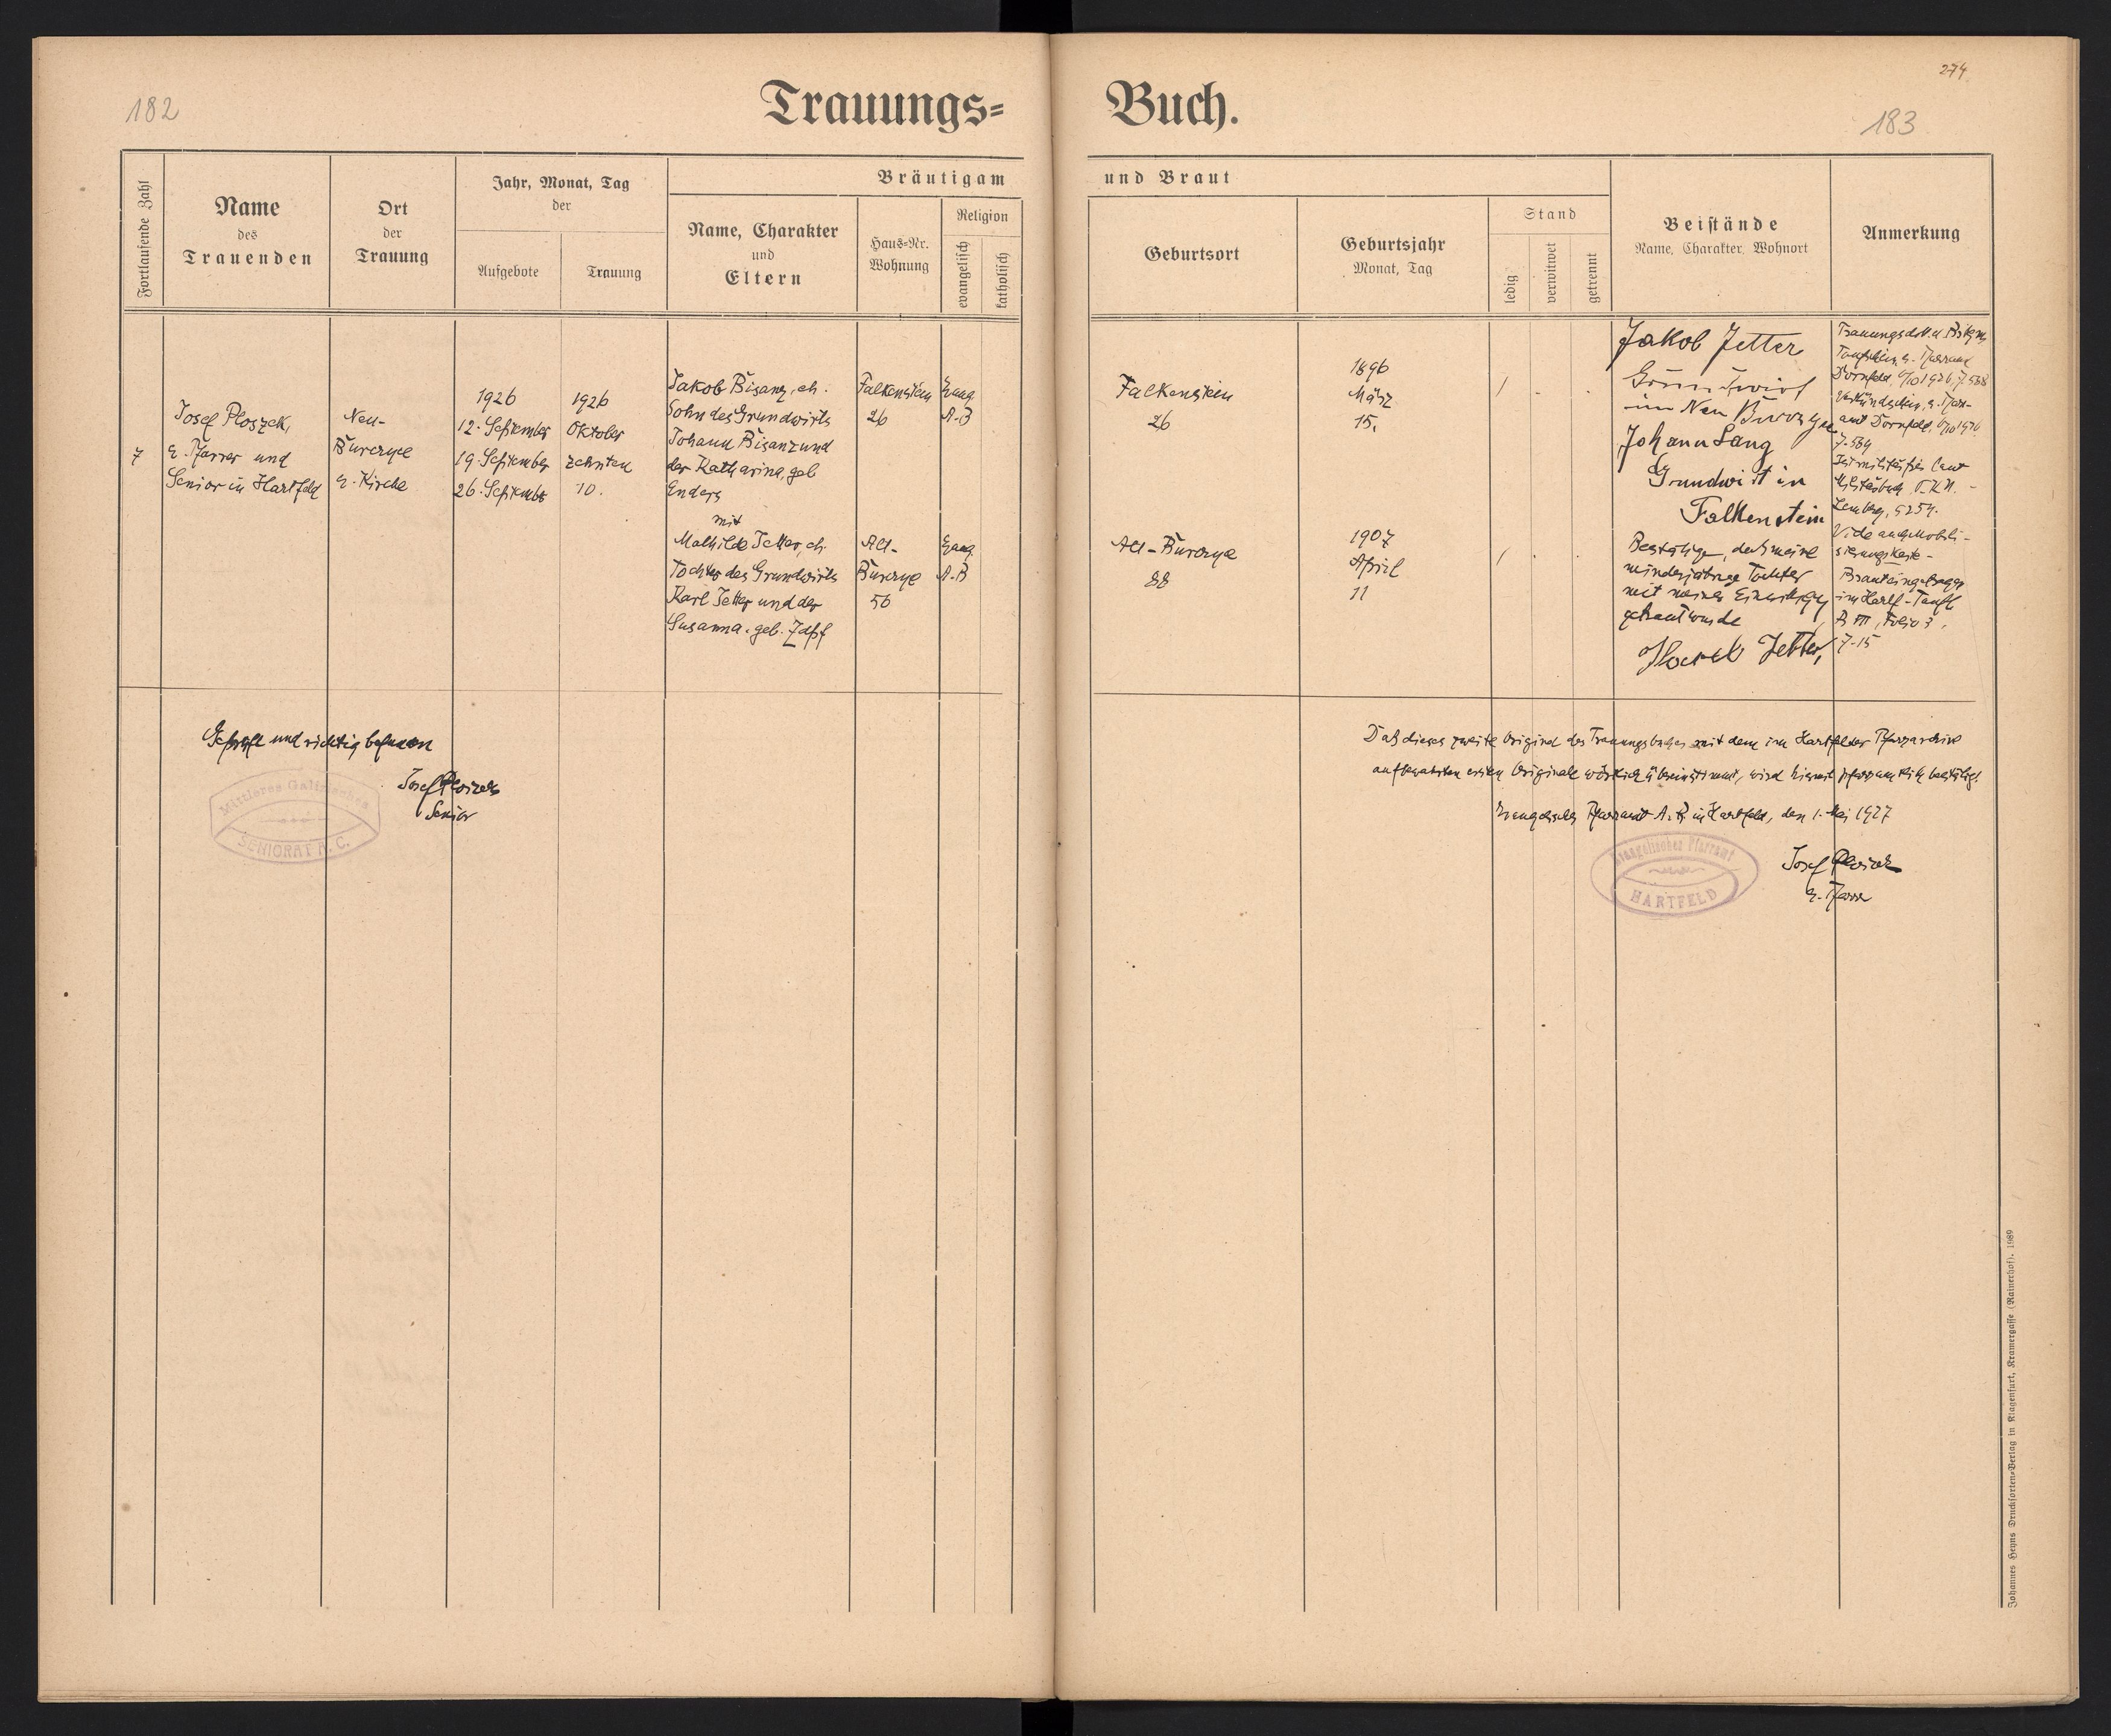 182
Trauungs=
Fortlaufende Zahl
Name
des
Trauenden
Ort
der
Trauung
Jahr, Monat, Tag
der
Aufgebote
Trauung
Bräutigam
Name, Charakter
und
Eltern
Haus=Nr.
Wohnung
Religion
evangelisch
katholisch
7
Josef Ploszek,
e. Pfarrer und
Senior in Hartfeld
Neu-
Burczyce
e. Kirche
1926
12. September
19. September
26. September
1926
Oktober
zehnten
10.
Jakob Bisanz, eh.
Sohn des Grundwirts
Johann Bisanz und
der Katharina, geb
Enders
mit
Mathilde Jetter, eh.
Tochter des Grundwirts
Karl Jetter und der
Susanna geb. Zapf
Falkenstein
26
Evang
A.B
Alt-
Burczyce
56
Evang.
A.B
Geprüft und richtig befunden
Josef Ploszek
Senior
Mittleres Galizisches
SENIORAT A. C.
274
Buch.
183
und Braut
Geburtsort
Geburtsjahr
Monat, Tag
Stand
ledig
verwitwet
getrennt
Beistände
Name, Charakter, Wohnort
Anmerkung
Falkenstein
26
1896
März
15.
/ - -
Alt-Burczyce
88
1907
April
11
/ - -
Jakob Jetter
Grundwirt
in Neu Burczyce
Johann Lang
Grundwirt in
Falkenstein
Bestätige, daß meine
minderjährige Tochter
mit meiner Einwilligung
getraut wurde
Jetter,
Taufschein, e. Pfarramt
Dornfeld, 6/10 1926, Z. 588
Verkündschein, e. Pfarr-
amt Dornfeld, 6/10 1926
Z. 589
Ist militärfrei laut
Militärbuch P.K.U.
Lemberg, 5254.
Vide auch Mobili-
sierungskarte -
Braut eingetragen
im Hartf.-Taufb
B III, Folio 3,
Z-15
Daß dieses zweite Original des Trauungsbuches mit dem im Hartfelder Pfarrarchive
aufbewahrten ersten Originale wörtlich übereinstimmt, wird hiemit pfarramtlich bestätigt.
Evangelisches Pfarramt A. B. in Hartfeld, den 1. Mai 1927
Evangelisches Pfarramt
HARTFELD
Josef Ploszek
e. Pfarrer
Johannes Heyns Drucksorten=Verlag in Klagenfurt, Kramergasse (Rainerhof). 1989